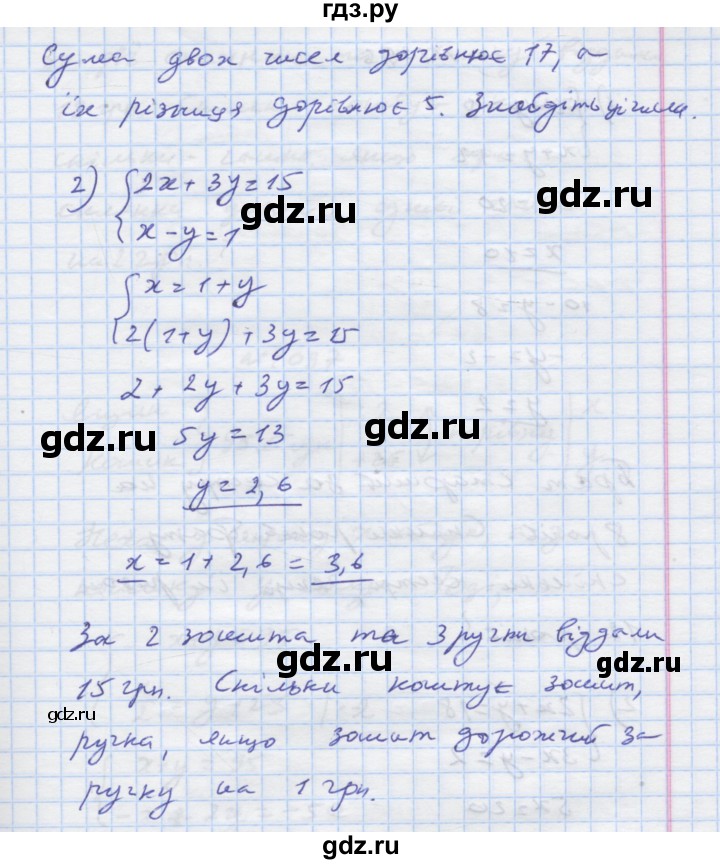 гдз.ру
Сума двох чисел дорівнює 17, а
їх різниця дорівнює 5. Знайдіть ці числа.
2) { 2x + 3y = 15
x - y = 1
gdz.ru gdz.ru
{ x = 1 + y
2(1+y) + 3y = 15
gdz.ru gdz.ru
2 + 2y + 3y = 15
5y = 13
gdz.ru gdz.ru
y = 2,6
x = 1 + 2,6 = 3,6
gdz.ru gdz.ru
За 2 зошита та 3 ручки віддали
gdz.ru
15 грн. Скільки коштує зошит,
gdz.ru gdz.ru
ручка, якщо зошит дорожчий за
gdz.ru gdz.ru
ручку на 1 грн.